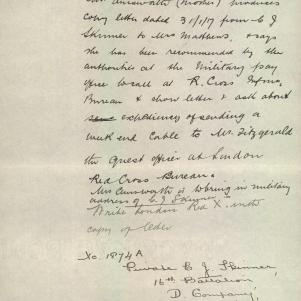 Mrs Ainsworth (Mother) produces
copy letter dated 31/1/17 from C J
Skinner to Mrs Mathews. & says
she has been recommended by the
authorities at the Military pay
office to call at R. Cross Infmn.
Bureau & show letter & ask about
expediency of sending a
week end Cable to Mr. Fitzgerald
the Quest officer at London
Red Cross Bureau.
Mrs Ainsworth is to bring in military
address of C J Skinner
Write London Red X. with
copy of letter
No. 1874A
Private C J Skinner,
16th Battalion
D. Company,